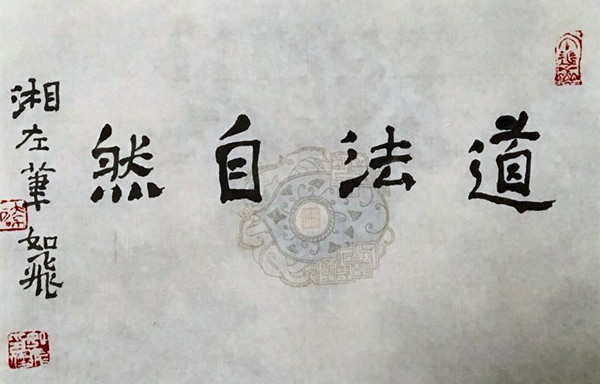 道法自然
湘左笔如飛